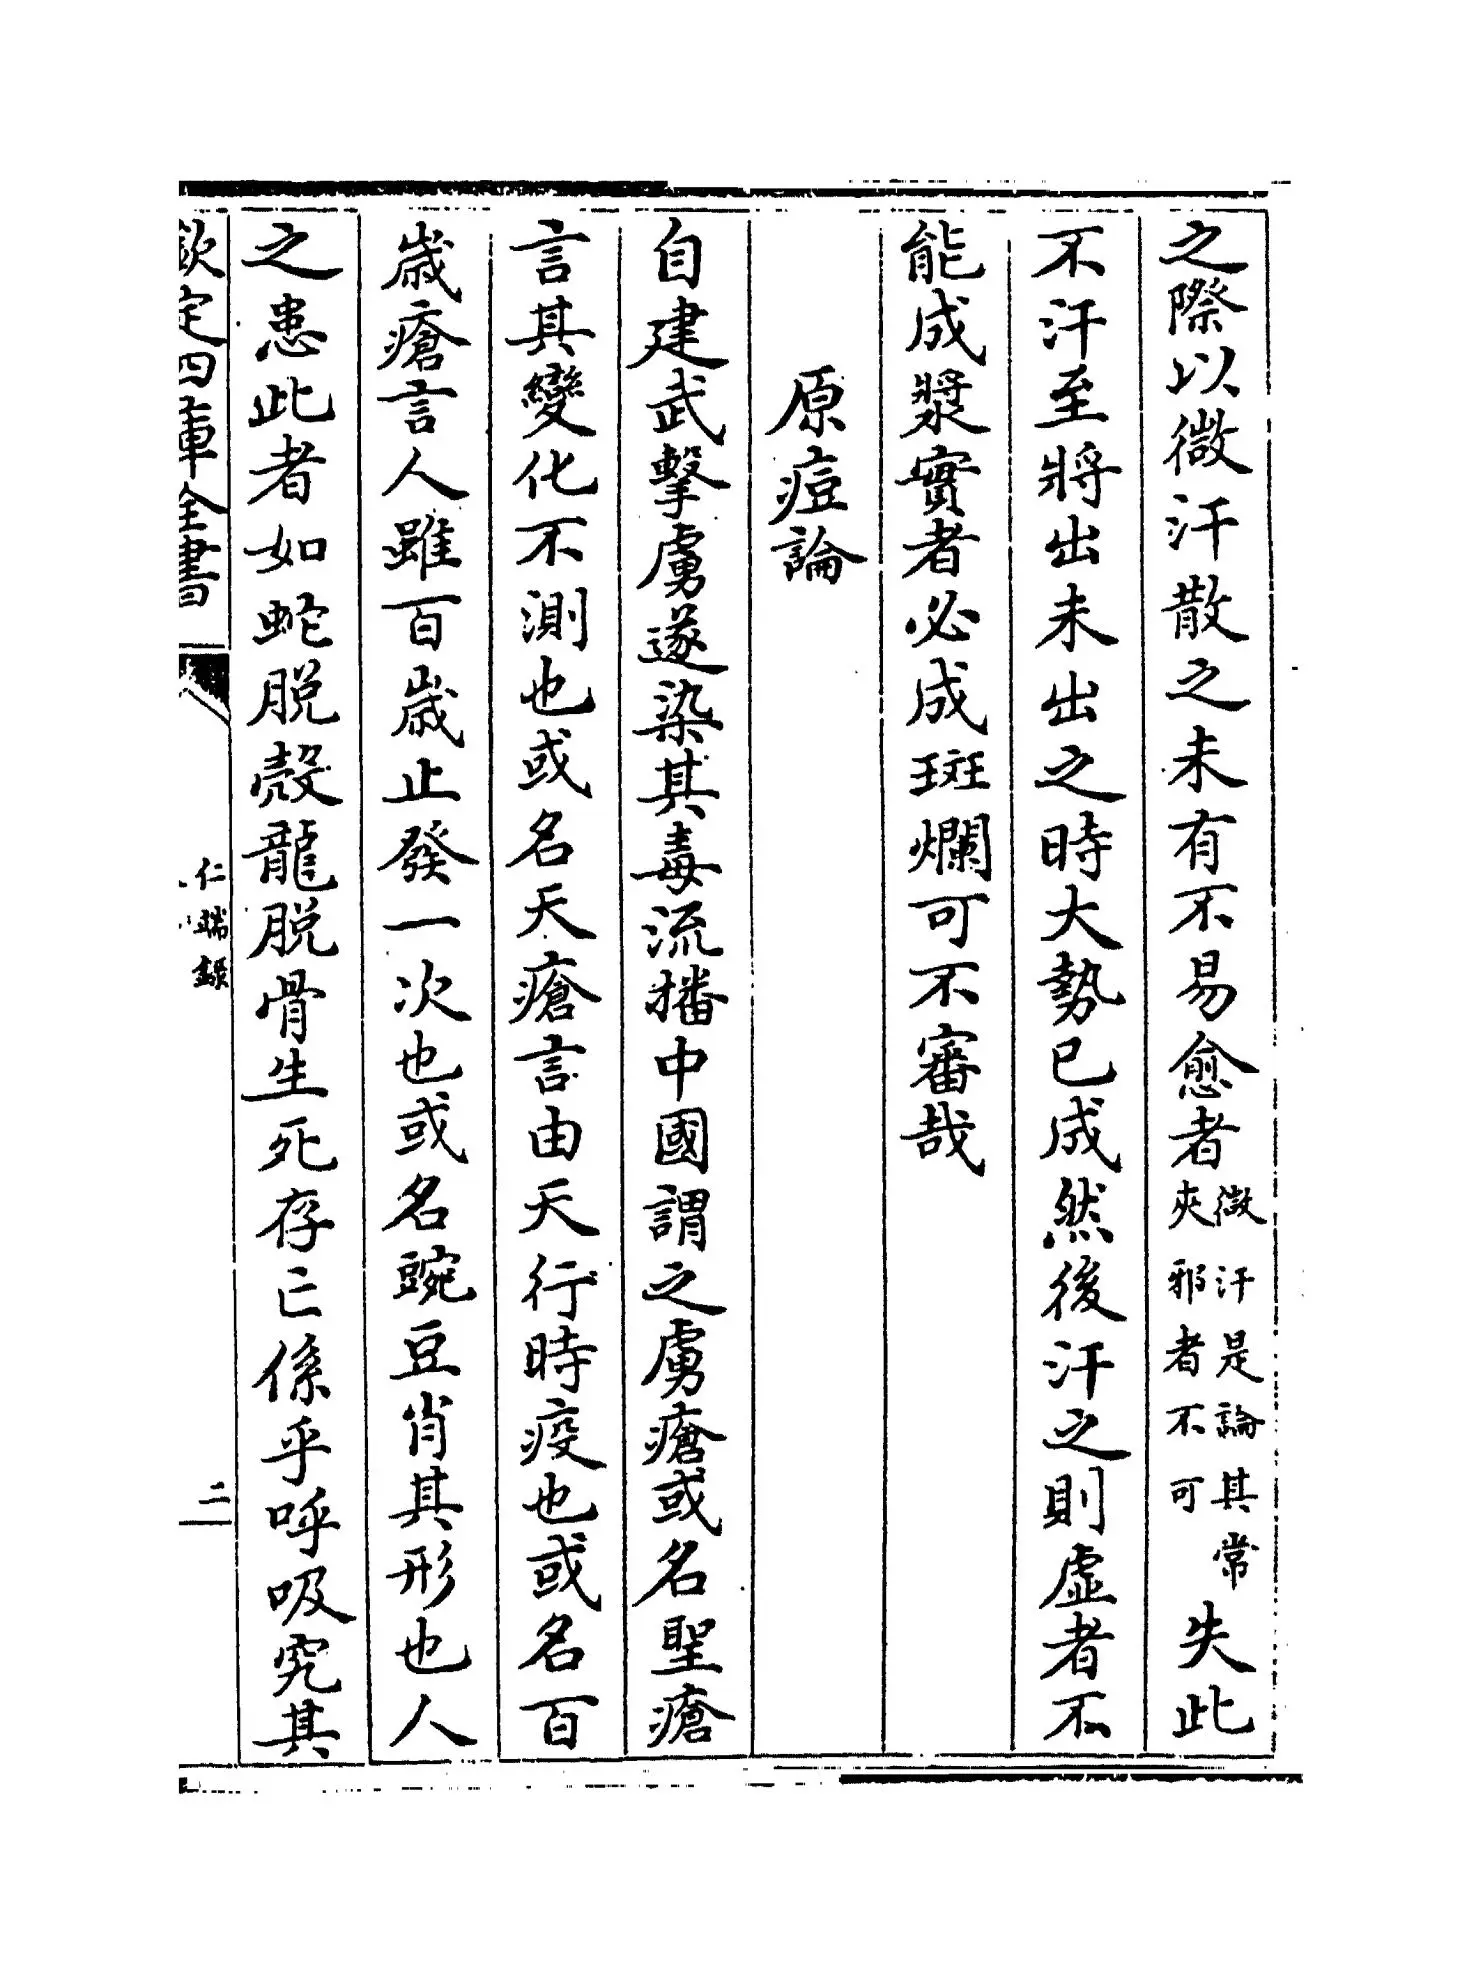 之際以微汗散之未有不易愈者微汗是論其常夾邪者不可失此
不汗至將出未出之時大勢已成然後汗之則虛者不
能成漿實者必成斑爛可不審哉
原痘論
自建武擊虜遂染其毒流播中國謂之虜瘡或名聖瘡
言其變化不測也或名天瘡言由天行時疫也或名百
歲瘡言人雖百歲止發一次也或名豌豆肖其形也人
之患此者如蛇脱殼龍脱骨生死存亡係乎呼吸究其
欽定四庫全書
仁端錄
二